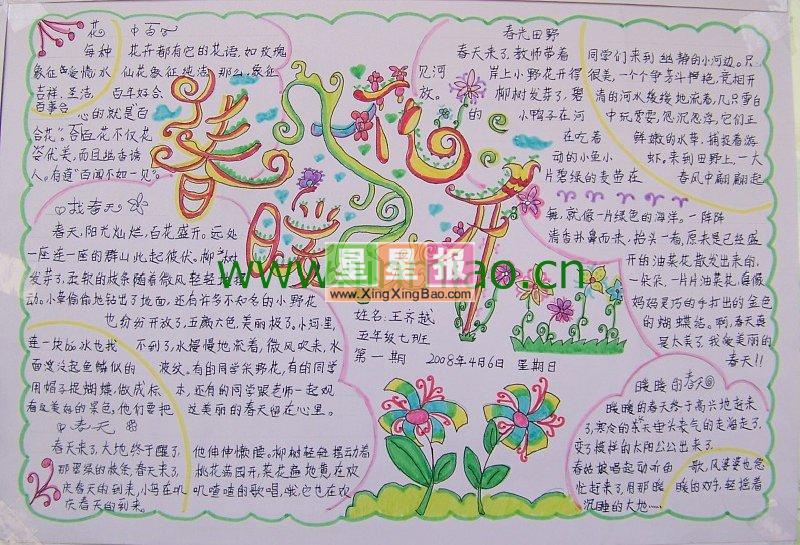 花中百合
每种花卉都有它的花语,如玫瑰
象征爱情,水仙花象征纯洁,那么,象征
吉祥、圣洁、百年好合、
百事合心的就是“百
合花”。百合花不仅花
姿优美,而且幽香诱
人。有道“百闻不如一见”。
找春天
春天,阳光灿烂,百花盛开。远处
一座连一座的群山此起彼伏。柳树
发芽了,柔软的枝条随着微风轻轻
动。小草偷偷地钻出了地面,还有许多不知名的小野花
也纷纷开放了,五颜六色,美丽极了。小河里,
连一块冰也找不到了,水慢慢地流着,微风吹来,水
面泛起鱼鳞似的波纹。有的同学采野花,有的同学
用帽子捉蝴蝶,做成标本,还有的同学跟老师一起观
看这美好的景色,他们要把这美丽的春天留在心里。
春天
春天来了,大地终于醒了,他伸伸懒腰。柳树轻轻摆动着
那翠绿的枝条,春天来了,桃花满园开,菜花遍地黄,在欢
庆春天的到来,小鸟在叽叽喳喳的歌唱,哦,它也在欢
庆春天的到来。
春花
暖开
春光田野
春天来了,教师带着同学们来到幽静的小河边。只
见河岸上小野花开得很美,一个个争芳斗艳,竞相开
放。柳树发芽了,碧清的河水缓缓地流着,几只雪白
的小鸭子在河中玩耍,忽沉忽浮,它们正
在吃着鲜嫩的水草,捕捉着游
动的小鱼小虾。来到田野上,一大
片碧绿的麦苗在春风中翩翩起
舞,就像一片绿色的海洋。一阵阵
清香扑鼻而来,抬头一看,原来是已经盛
开的油菜花散发出来的,
一朵朵,一片片油菜花,真像
妈妈灵巧的手打出的金色
的蝴蝶结。啊,春天真
是太美了,我爱美丽的
春天!!
姓名:王齐越
五年级七班
第一期 2008年4月6日 星期日
暖暖的春天
暖暖的春天终于高兴地赶来
了,寒冷的冬天垂头丧气的走海走了,
变了模样的太阳公公出来了,
春姑娘唱起动听的歌,风婆婆也急
忙赶来了,用那暖暖的双手,轻摇着
沉睡的大地……
www.
bao.cn
星星报
www.XingXingBao.com